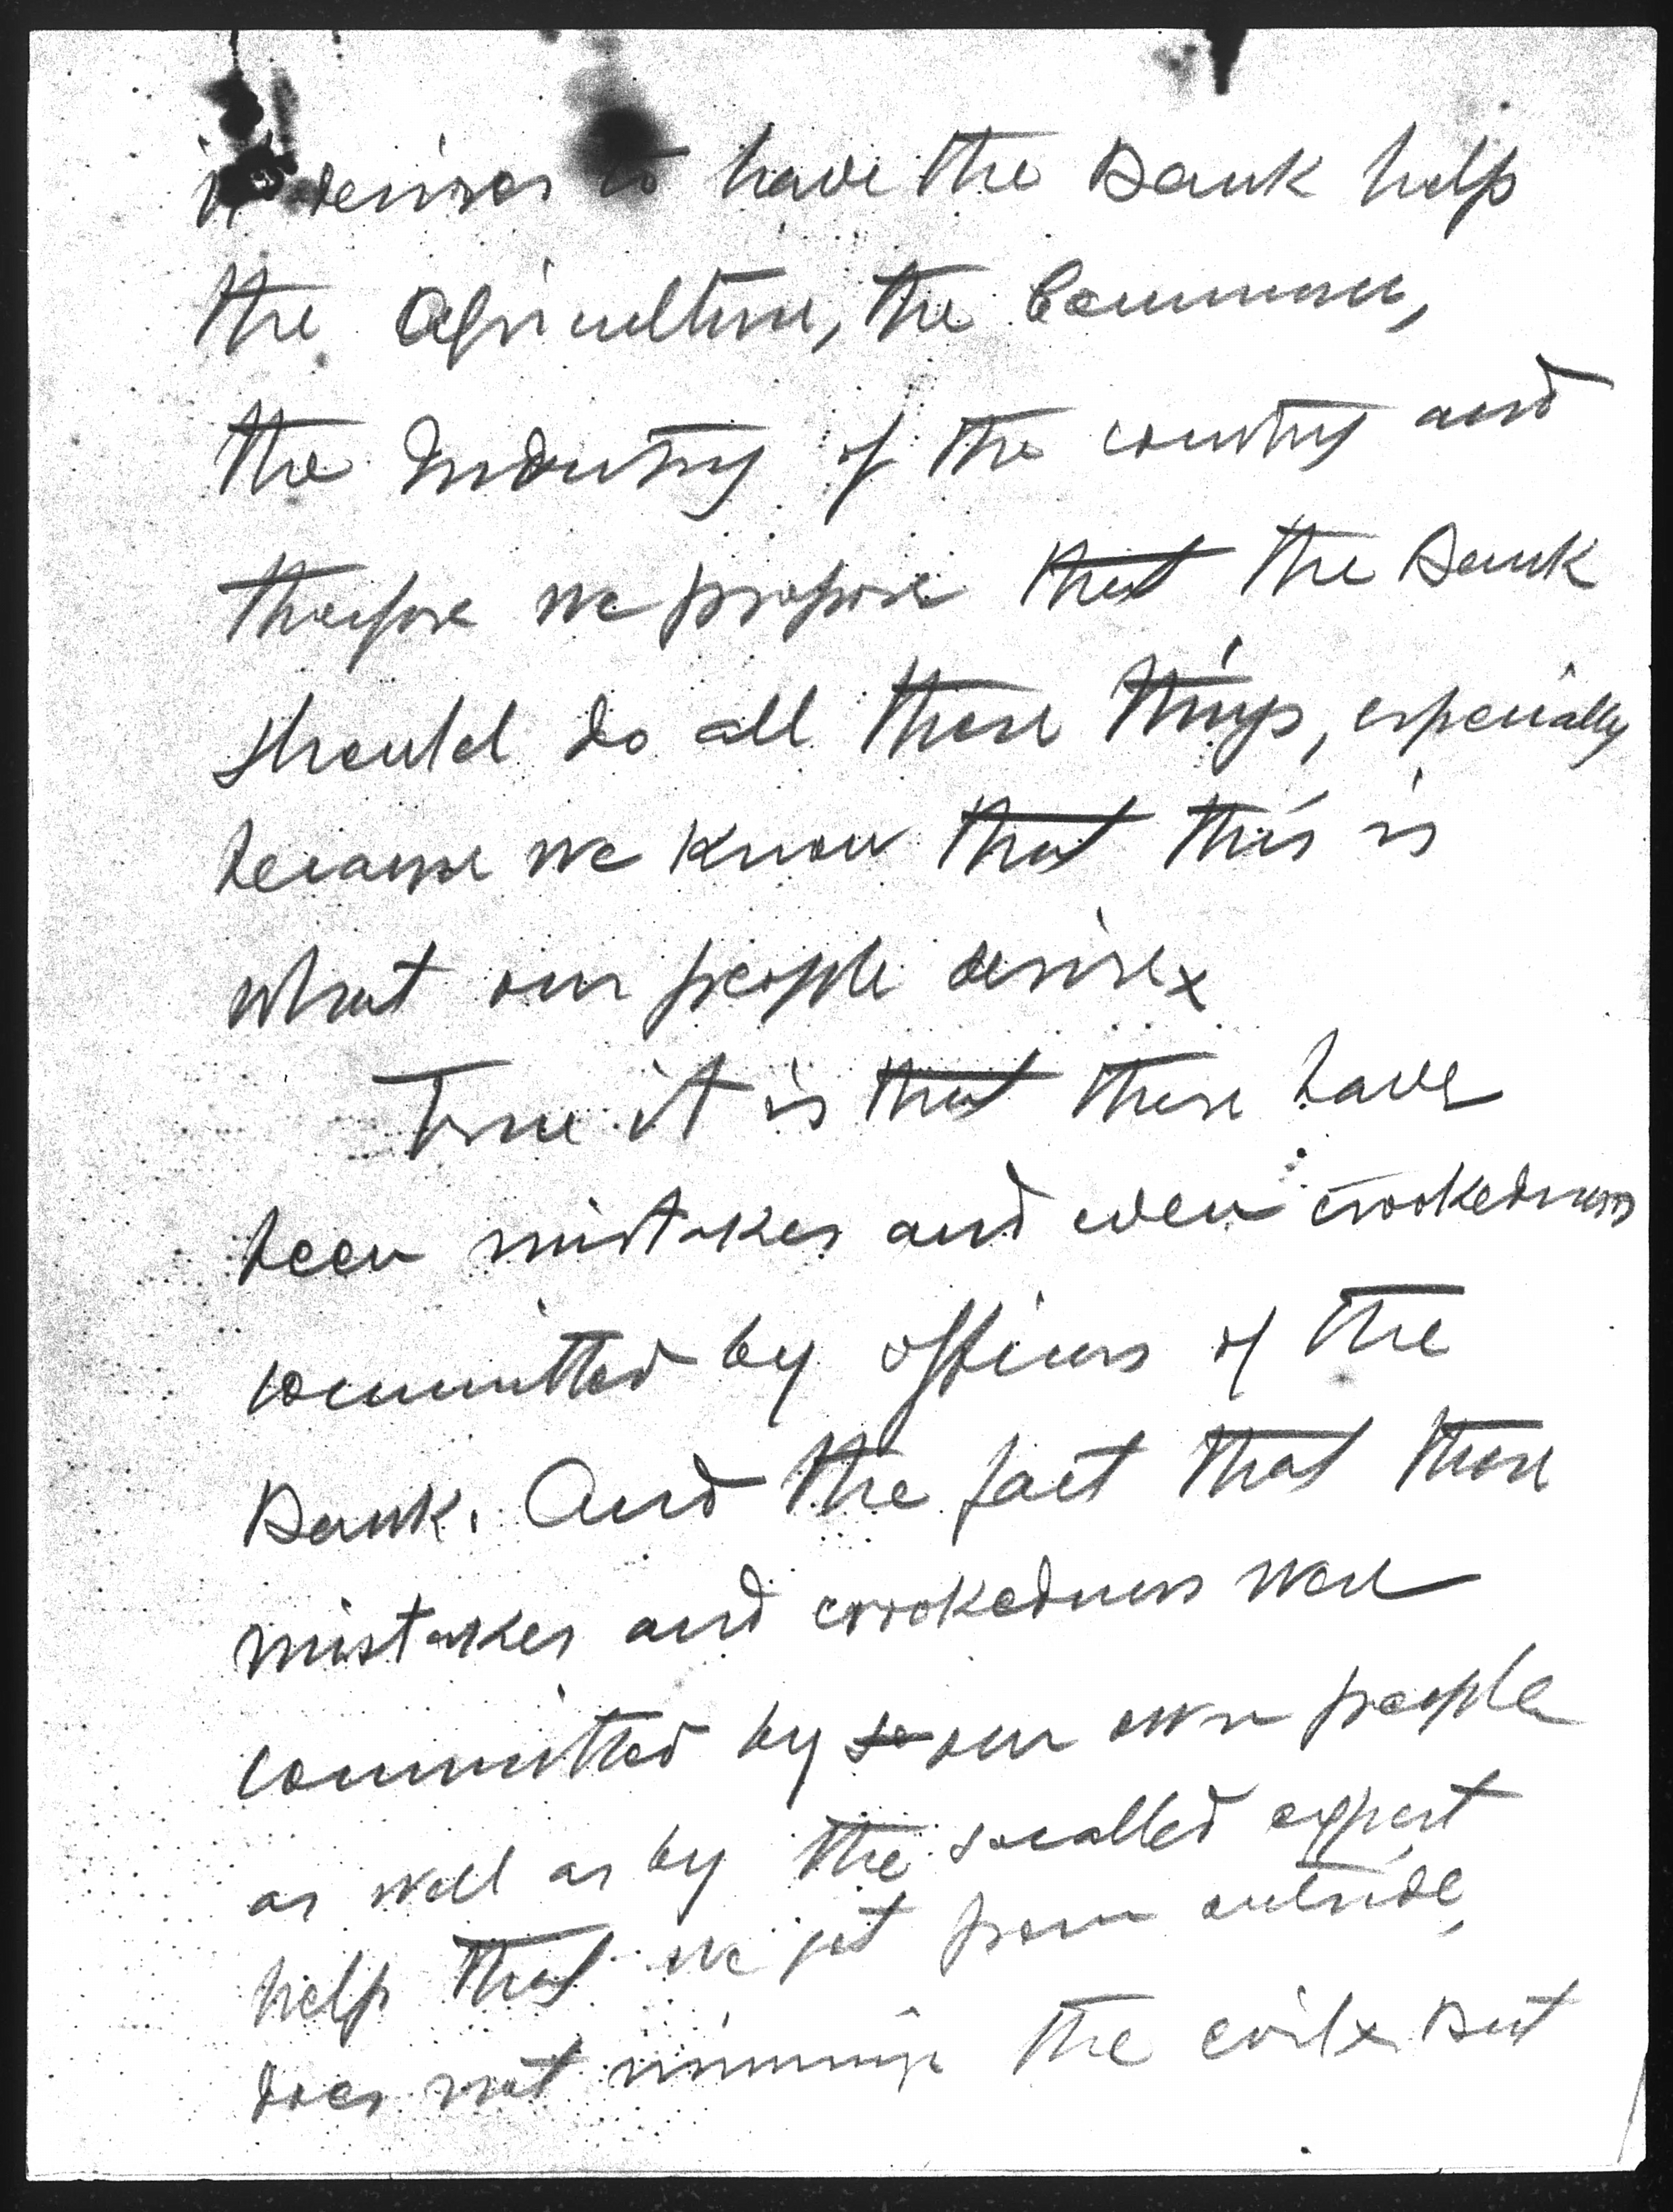 it desires to have the Bank help
the Agriculture, the Commerce,
the Industry of the country and
therefore we propose that the Bank
should do all these things, especially
because we know that this is
what our people desire x
True it is that there have
been mistakes and even crookedness
committed by officers of the
Bank. And the fact that these
mistakes and crookedness were
committed by so our own people
as well as by the socalled expert
help that we get from outside,
does not minimize the evil x But